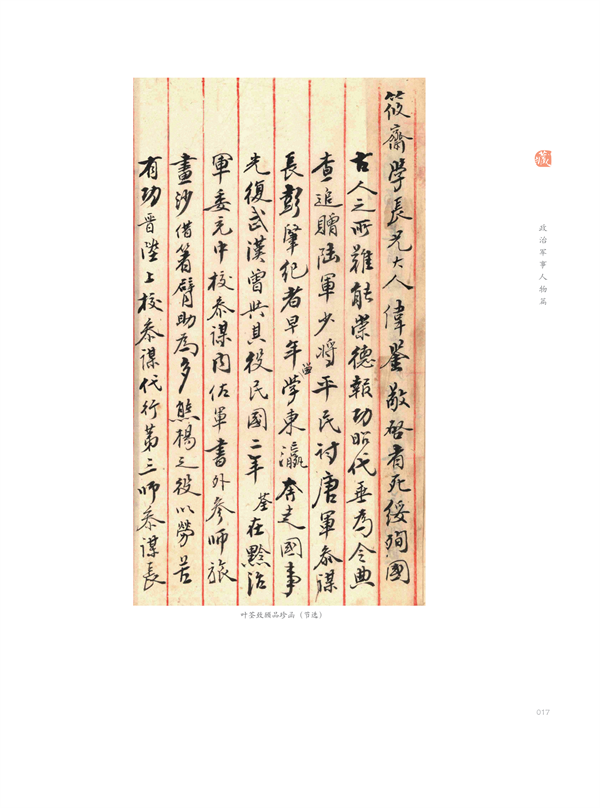 筱齋學長兄大人偉鑒敬啓者死綏殉國
古人之所難能崇德報功昭代垂為令典
查追贈陸軍少將平民討唐軍參謀
長彭肇紀者早年遊學東瀛奔走國事
光復武漢曾共其役民國二年荃在黔治
軍委充中校參謀內佐軍書外參師旅
畫沙借箸臂助為多熊楊之役以勞苦
有功晉陞上校參謀代行第三師參謀長
叶荃致顾品珍函（节选）
藏
政治军事人物篇
017